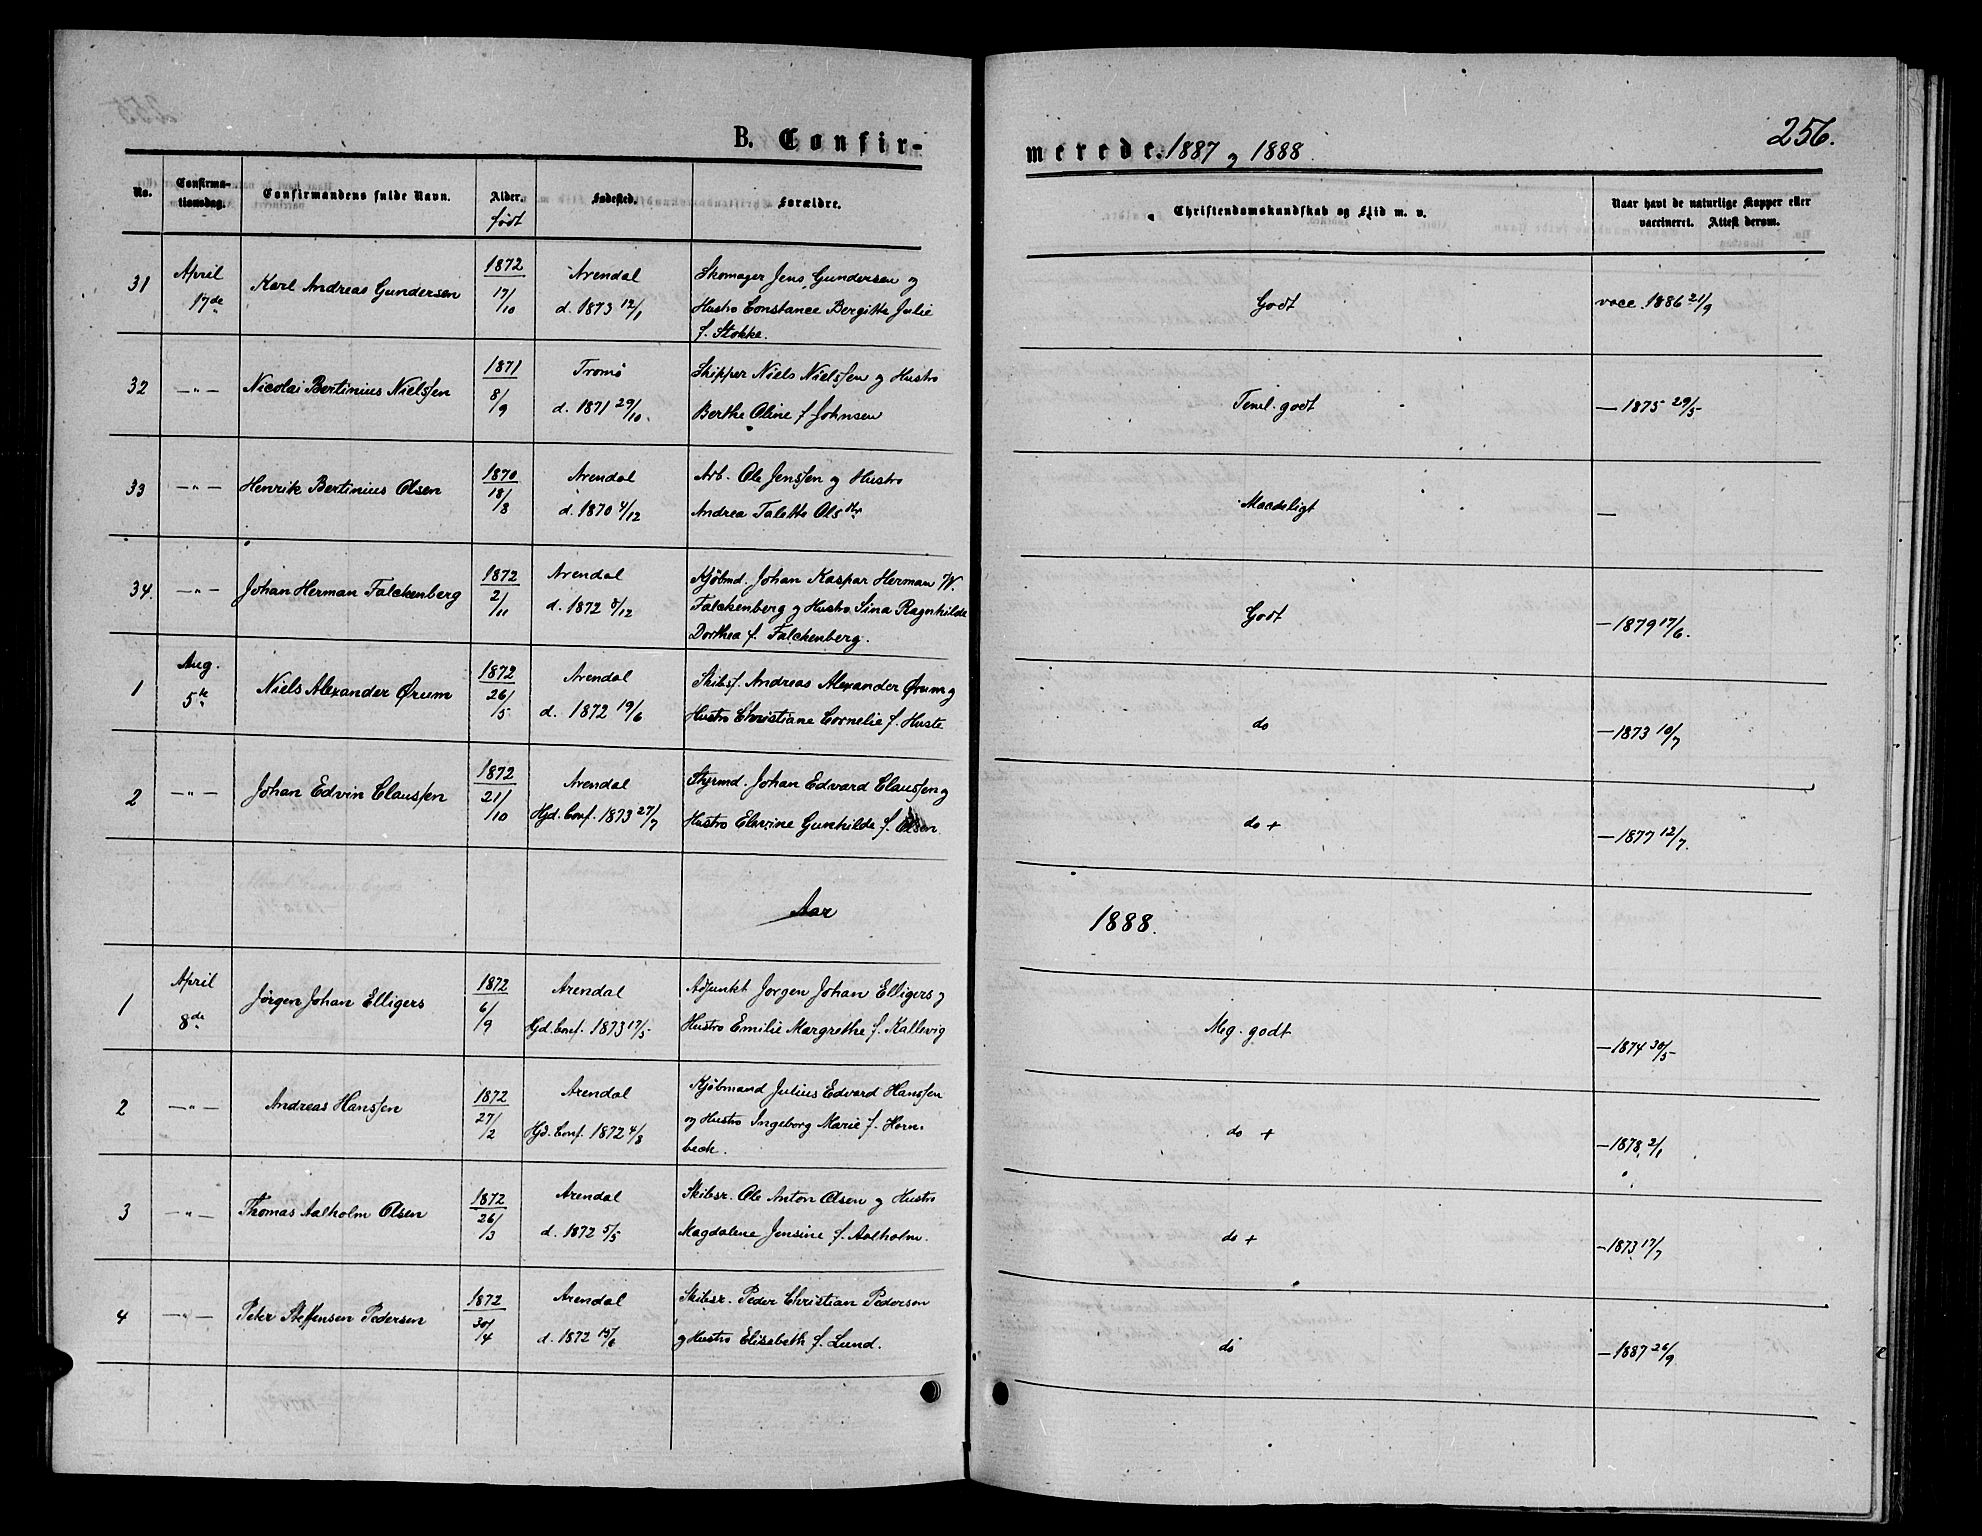 256.
B. Confirmerede. 1887 og 1888.
No. Confirmationsdag. Confirmandens fulde Navn. Alder. født Fødested. Forældre. Christendomskundskab og Flid m. v. Naar havt de naturlige Kopper eller vaccineret. Attest derom.
31 April 17de Karl Andreas Gundersen 1872 17/10 Arendal d. 1873 12/1 Skomager Jens Gundersen og Hustro Constance Bergitte Julie f. Stokke. Godt vacc. 1886 21/9
32 —"— Nicolai Bertinius Nielssen 1871 8/9 Tromø d. 1871 29/10. Skipper Niels Nielssen og Hustro Berthe Oline f. Johnsen Teml. godt — 1875 29/5
33 —"— Henrik Bertinius Olsen 1870 18/8 Arendal d. 1870 4/12 Arb. Ole Jenssen og Hustro Andrea Talette Olsdtr Maadeligt —
34. —"— Johan Herman Falckenberg 1872 2/11 Arendal d. 1872 8/12 Kjøbmd. Johan Kaspar Herman W. Falckenberg og Hustro Sina Ragnhilde Dorthea f. Falckenberg. Godt — 1879 17/6.
1 Aug. 5te Niels Alexander Ørum 1872 26/5 Arendal d. 1872 19/6 Skibsf. Andreas Alexander Ørum og Hustro Christiane Cornelie f. Huste do — 1873 10/7
2 —"— Johan Edvin Claussen 1872 21/10 Arendal Hjd. Conf. 1873 27/7 Styrmd. Johan Edvard Claussen og Hustro Elevine Gunhilde f. Olsen do + — 1877 12/7.
Aar 1888.
1 April 8de Jørgen Johan Elligers 1872 6/9 Arendal Hjd. Conf. 1873 17/5 Adjunkt Jørgen Johan Elligers og Hustro Emilie Margrethe f. Kallevig Meg. godt — 1874 30/5
2 —"— Andreas Hanssen 1872 27/2 Arendal Hjd. Conf. 1872 4/8 Kjøbmand Julius Edvard Hanssen og Hustro Ingeborg Marie f. Hornbeck. do + — 1878 2/1
3 —"— Thomas Aalholm Olsen 1872 26/3 Arendal d. 1872 5/5 Skibsr. Ole Anton Olsen og Hustro Magdalene Jensine f. Aalholm. do + — 1873 17/7
4 —"— Peter Steffensen Pedersen 1872 30/4 Arendal d. 1872 15/6 Skibsr. Peder Christian Pedersen og Hustro Elisabeth f. Lund. do — 1887 26/9